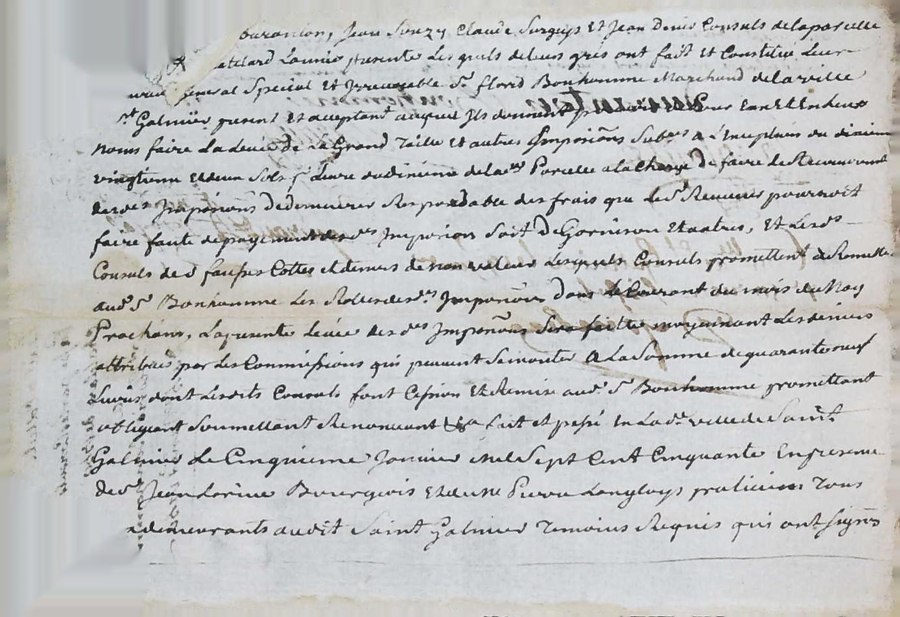 Jean Souzy Claude Surguys Et Jean Denis Consuls de la parcelle
presente Lesquels de leurs grés ont fait Et Constitué Leur
general Special Et Irrevocable Sr. florid Bonhomme Marchand de la ville
St Galmier present Et acceptant auquel Ils donnent pouvoir de pour Eux Et En leurs
noms faire La levée de la Grand Taille Et autres Imposions
vingtieme et deux Sols pr Livre du dixieme de lad. Parcelle a la charge De faire le Recouvrement
desd. Imposions De demeurer Responsable des frais que le Sr Receveur pourroit
faire faute de payement desd. Imposions Soit De Garnison Et autres, Et Lesd.
Consuls de fausses Cottes et deniers de non valeur Lesquels Consuls promettent de Remettre
aud. Sr. Bonhomme Les Rolles desd. Imposions Dans le Courant du mois de May
Prochain, La presente levée desd. Imposions Sera faitte moyennant Les deniers
attribués par les Commissions qui peuvent Se monter a La Somme de quarante neuf
Livres dont Lesdits Consuls font Cession Et Remise aud. Sr. Bonhomme promettant
obligeant Soumettant Renonçant &a fait et passé En Lad. ville de Saint
Galmier Le Cinquieme Janvier mil Sept Cent Cinquante En presence
de Sr. Jean Lorine Bourgeois Et de Me Pierre Langloys praticien Tous
demeurants audit Saint Galmier Temoins Requis qui ont Signés